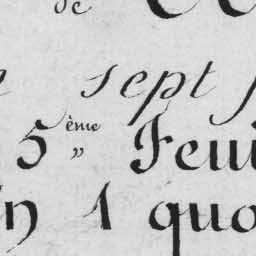 de
sept
5ème Feui
1 quo